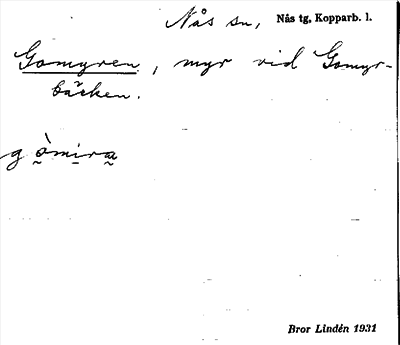 Nås sn, Nås tg, Kopparb. l.
Gomyren, myr vid Gomyr-
bäcken.
g òmira
Bror Lindén 1931